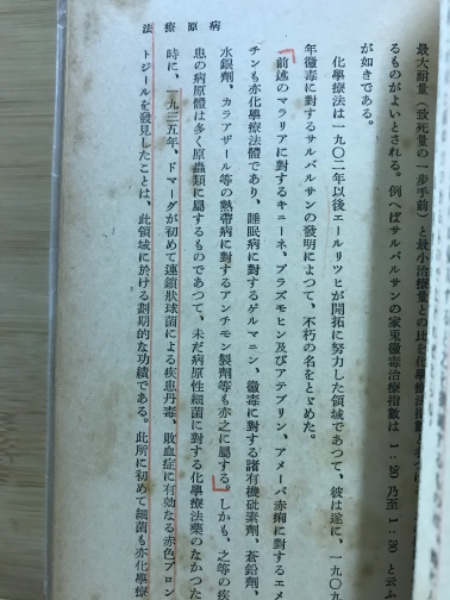 病原療法
最大耐量(致死量の一步手前)と最小治療量との比を化學療法指數と
るものがよいとされる。例へばサルバルサンの家兎黴毒治療指數は 1:20 乃至 1:30 と云ふ
が如きである。
化學療法は一九〇二年以後エールリツヒが開拓に努力した領域であつて、彼は遂に、一九〇九
年黴毒に對するサルバルサンの發明によつて、不朽の名をとゞめた。
前述のマラリアに對するキニーネ、プラズモヒン及びアテブリン、アメーバ赤痢に對するエメ
チンも亦化學療法體であり、睡眠病に對するゲルマニン、黴毒に對する諸有機砒素劑、蒼鉛劑、
水銀劑、カラアザール等の熱帶病に對するアンチモン製劑等も亦之に屬する。しかも、之等の疾
患の病原體は多く原蟲類に屬するものであつて、未だ病原性細菌に對する化學療法藥のなかつた
時に、一九三五年、ドマーグが初めて連鎖狀球菌による疾患丹毒、敗血症に有効なる赤色プロン
トジールを發見したことは、此領域に於ける劃期的な功績である。此所に初めて細菌も亦化學療